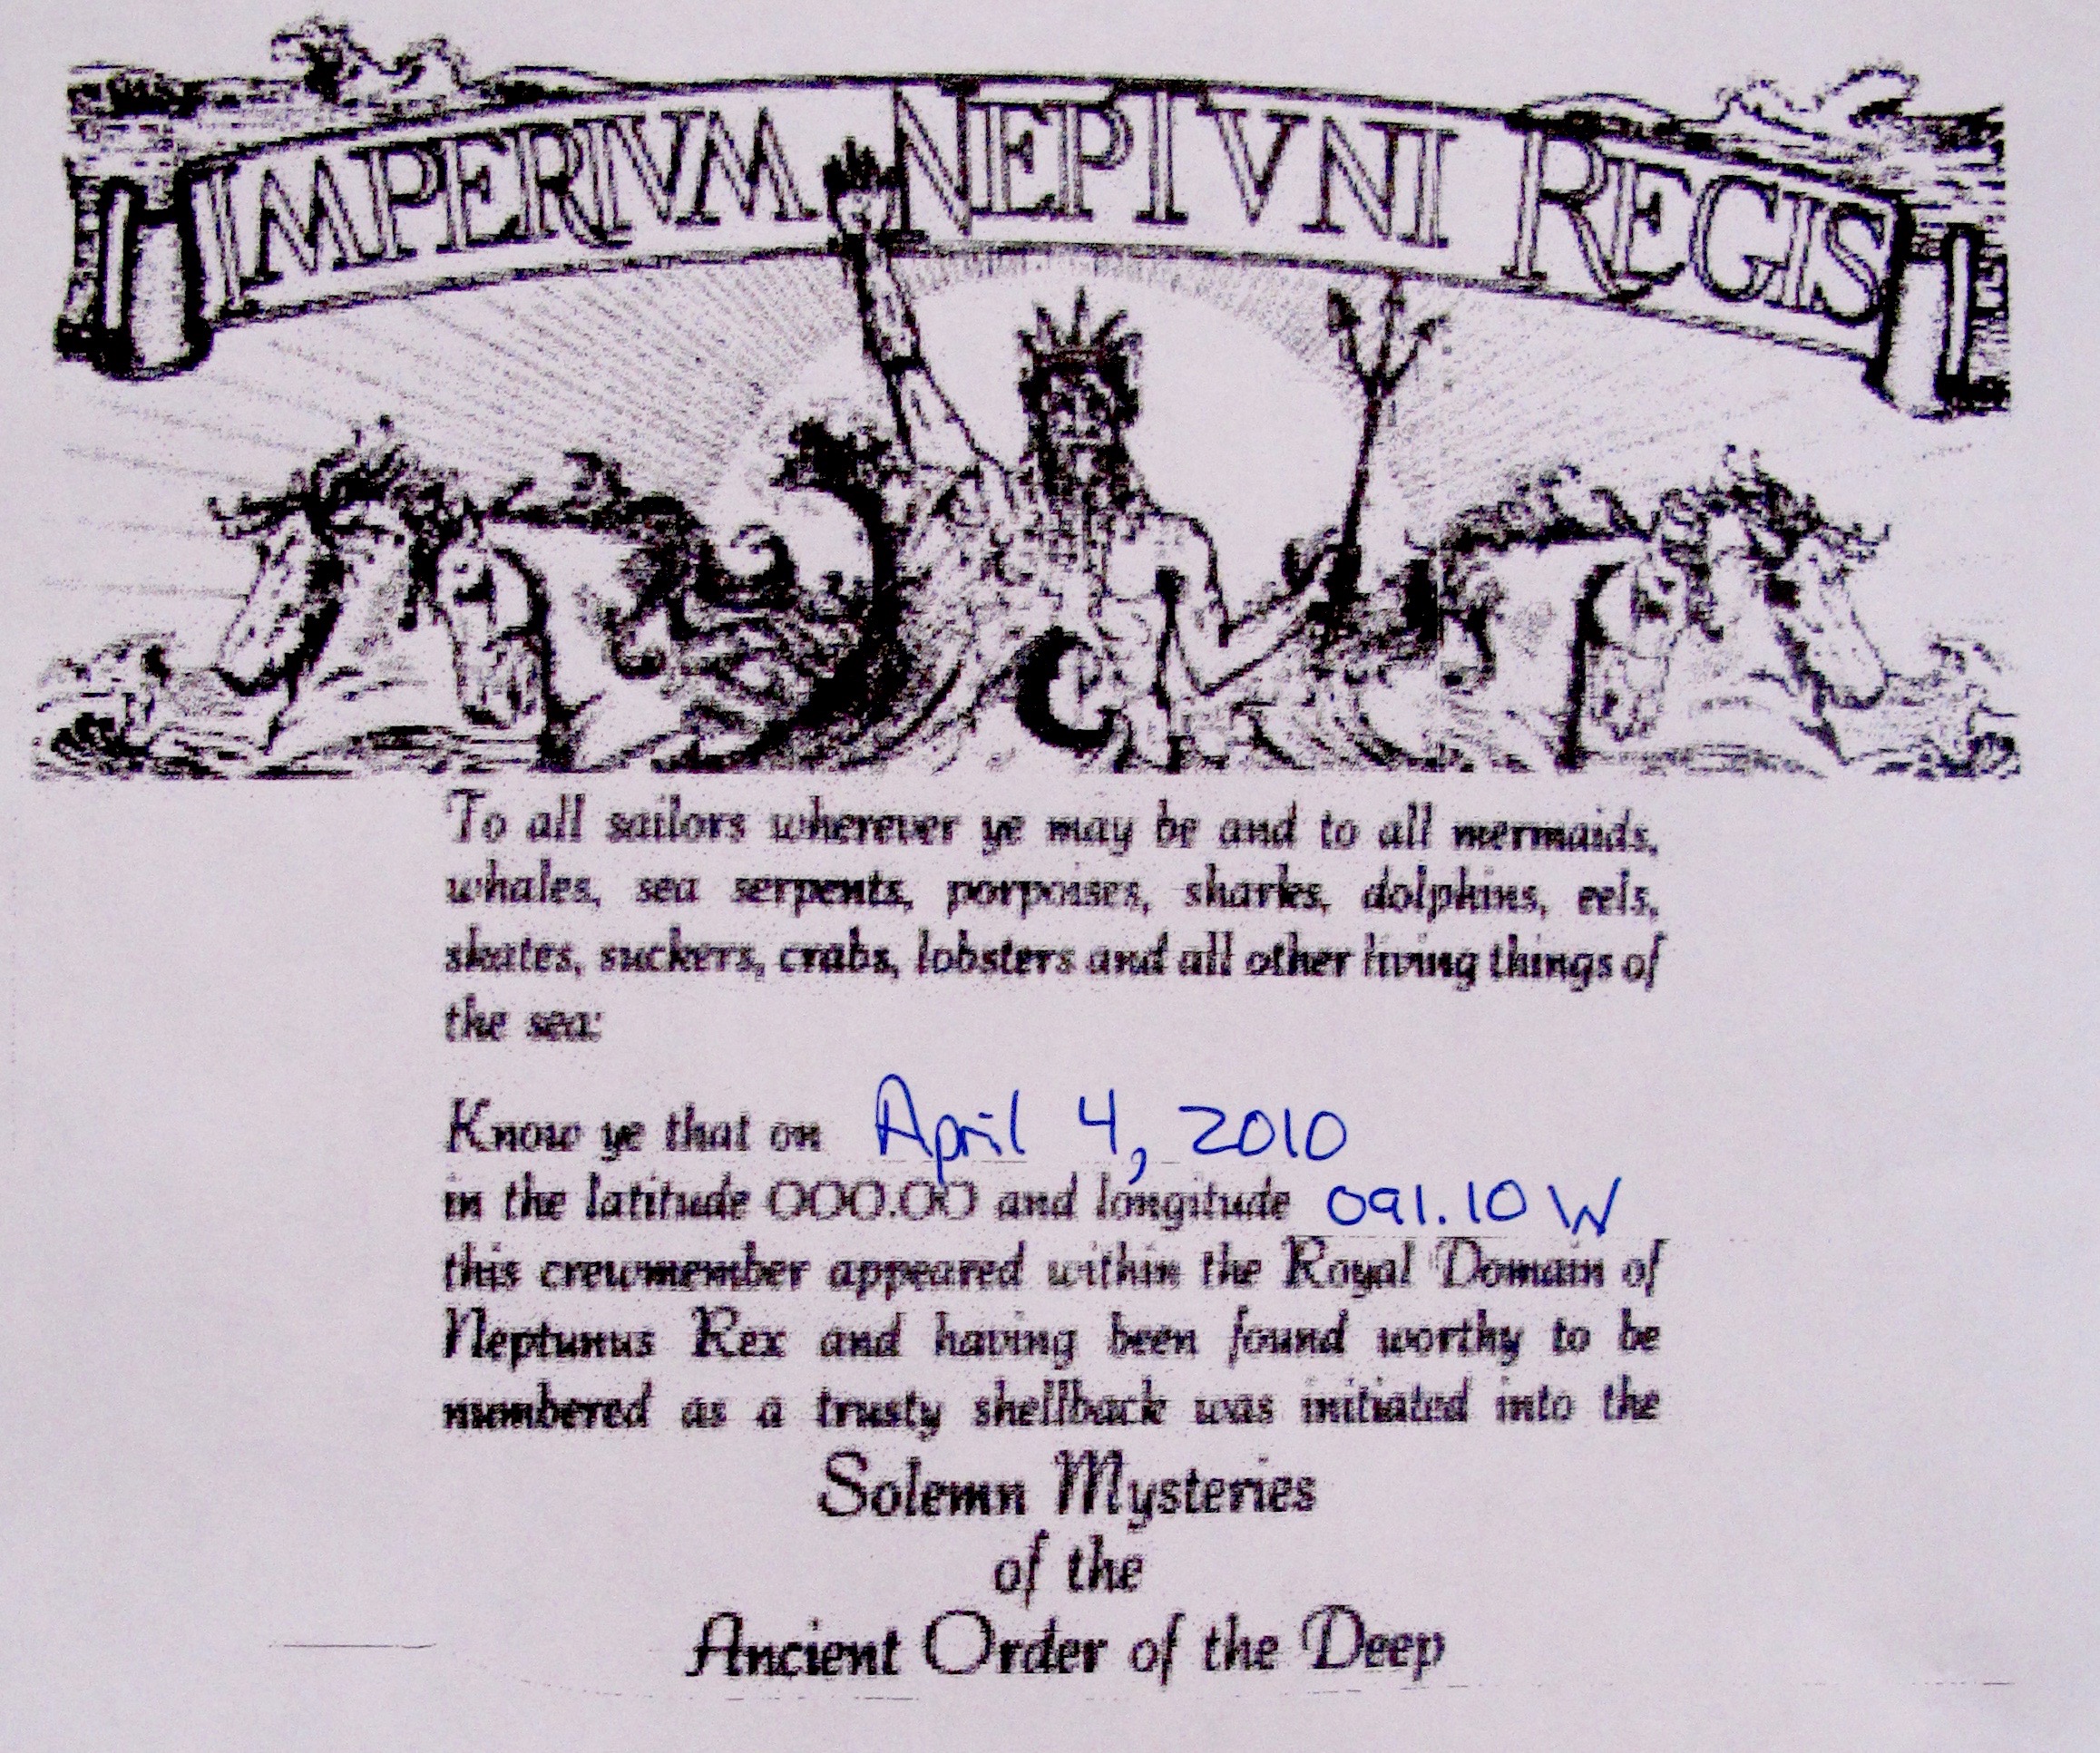 IMPERIVM NEPTVNI REGIS
To all sailors wherever ye may be and to all mermaids,
whales, sea serpents, porpoises, sharks, dolphins, eels,
skates, suckers, crabs, lobsters and all other living things of
the sea:
Know ye that on April 4, 2010
in the latitude 000.00 and longitude 091.10 W
this crewmember appeared within the Royal Domain of
Neptunus Rex and having been found worthy to be
numbered as a trusty shellback was initiated into the
Solemn Mysteries
of the
Ancient Order of the Deep